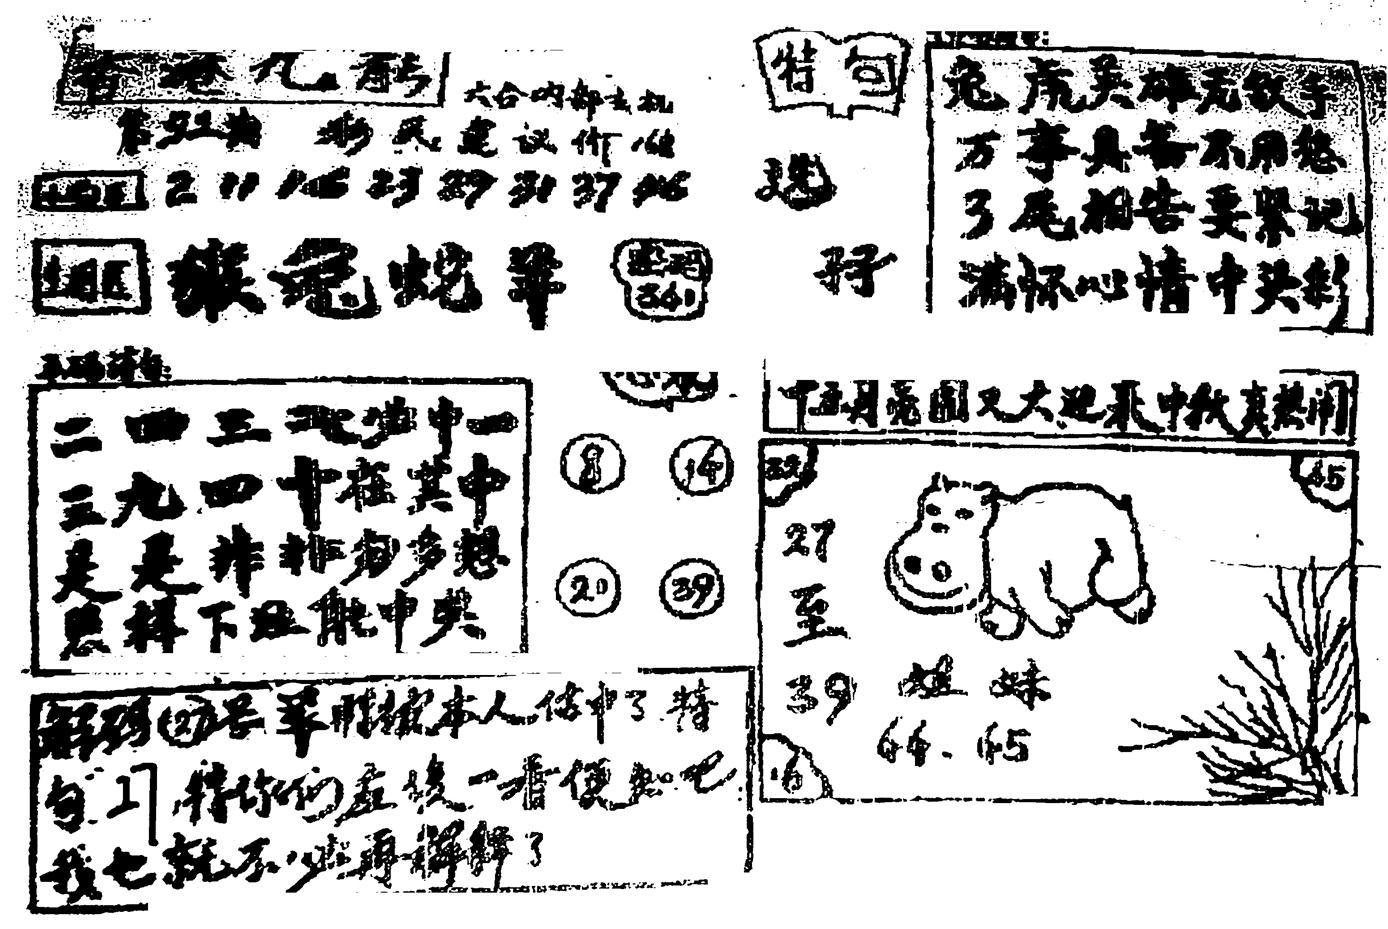 香港九龍
六合内部玄机
彩民建议价值
2 11 23 29 31 37 46
猴兔蛇羊
密码
361
特句
兔虎英雄无敌手
万事具备不用愁
3尾相告要紧记
满怀心情中头彩
二四三 中一
三九四十在其中
是是非非多多想
照样下注能中奖
8 14
20 39
十五月亮圆又大迎来中秋真热闹
32 45
27
至
39
姐妹
44.45
16
解码(27)号羊 本人估中了特
句 特你们在後一看便知吧
我也就不必再解释了